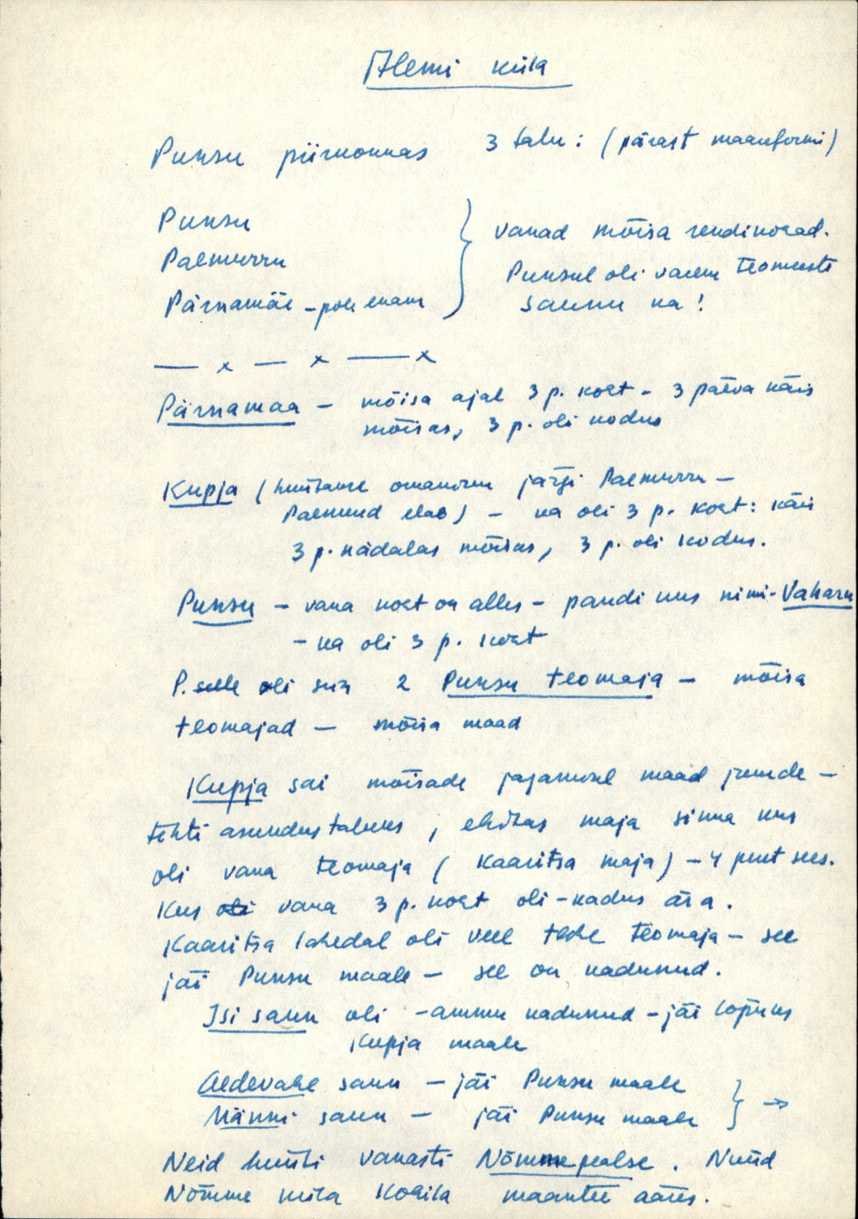 Alemi küla
Punsu piirkonnas 3 talu: (pärast maareformi)
Punsu } vanad mõisa rendikohad.
Paemurru Punsul oli varem teomeeste
Pärnamäe – pole enam saunu ka!
— x — x — x
Pärnamaa – mõisa ajal 3 p. koht – 3 päeva käis
mõisas, 3 p. oli kodus
Kupja (hüütakse omaniku järgi Paemurru –
Paemurd elab) – ka oli 3 p. koht: käis
3 p. nädalas mõisas, 3 p. oli kodus.
Punsu – vana koht on alles – pandi uus nimi – Vaharu
– ka oli 3 p. koht
P. selle oli siin 2 Punsu teomaja – mõisa
teomajad – mõisa maad
Kupja sai mõisade jagamisel maad juurde –
tehti asundustaluks, ehitas maja sinna kus
oli vana teomaja (Kaaritsa maja) – 4 peret sees.
Kus oli vana 3 p. koht oli – kadus ära.
Kaaritsa lähedal oli veel teine teomaja – see
jäi Punsu maale – see on kadunud.
Isi saun oli – ammu kadunud – jäi lõpuks
Kupja maale
Aedevahe saun – jäi Punsu maale
Männi saun – jäi Punsu maale } →
Neid hüüti vanasti Nõmmepealse. Nüüd
Nõmme küla Kohila maantee ääres.